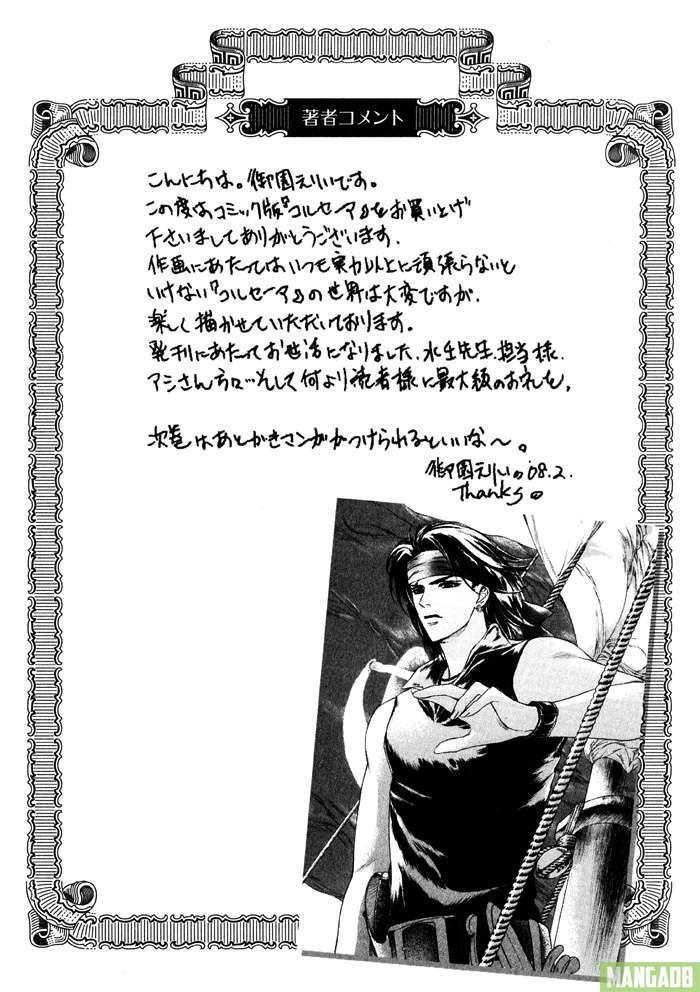 著者コメント
こんにちは。御園えりいです。
この度はコミック版『コルセーア』をお買い上げ
下さいましてありがとうございます.
作画にあたってはいつも実力以上に頑張らないと
いけない『コルセーア』の世界は大変ですが、
楽しく描かせていただいております。
発刊にあたってお世話になりました、水壬先生、担当様、
アシさん方々…そして何より読者様に最大級のお礼を。
次巻はあとがきマンガがつけられるといいな〜。
御園えりい '08.2.
Thanks
MANGADB